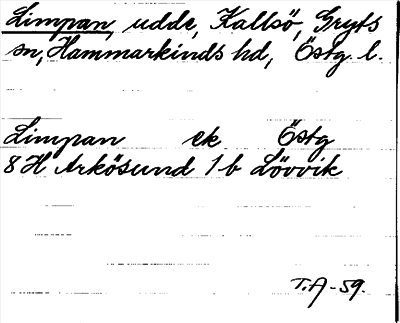 Limpan, udde, Kallsö, Gryts
sn, Hammarkinds hd, Östg. l.
Limpan ek Östg
8 H Arkösund 1 b Lövvik
T.A - 59.